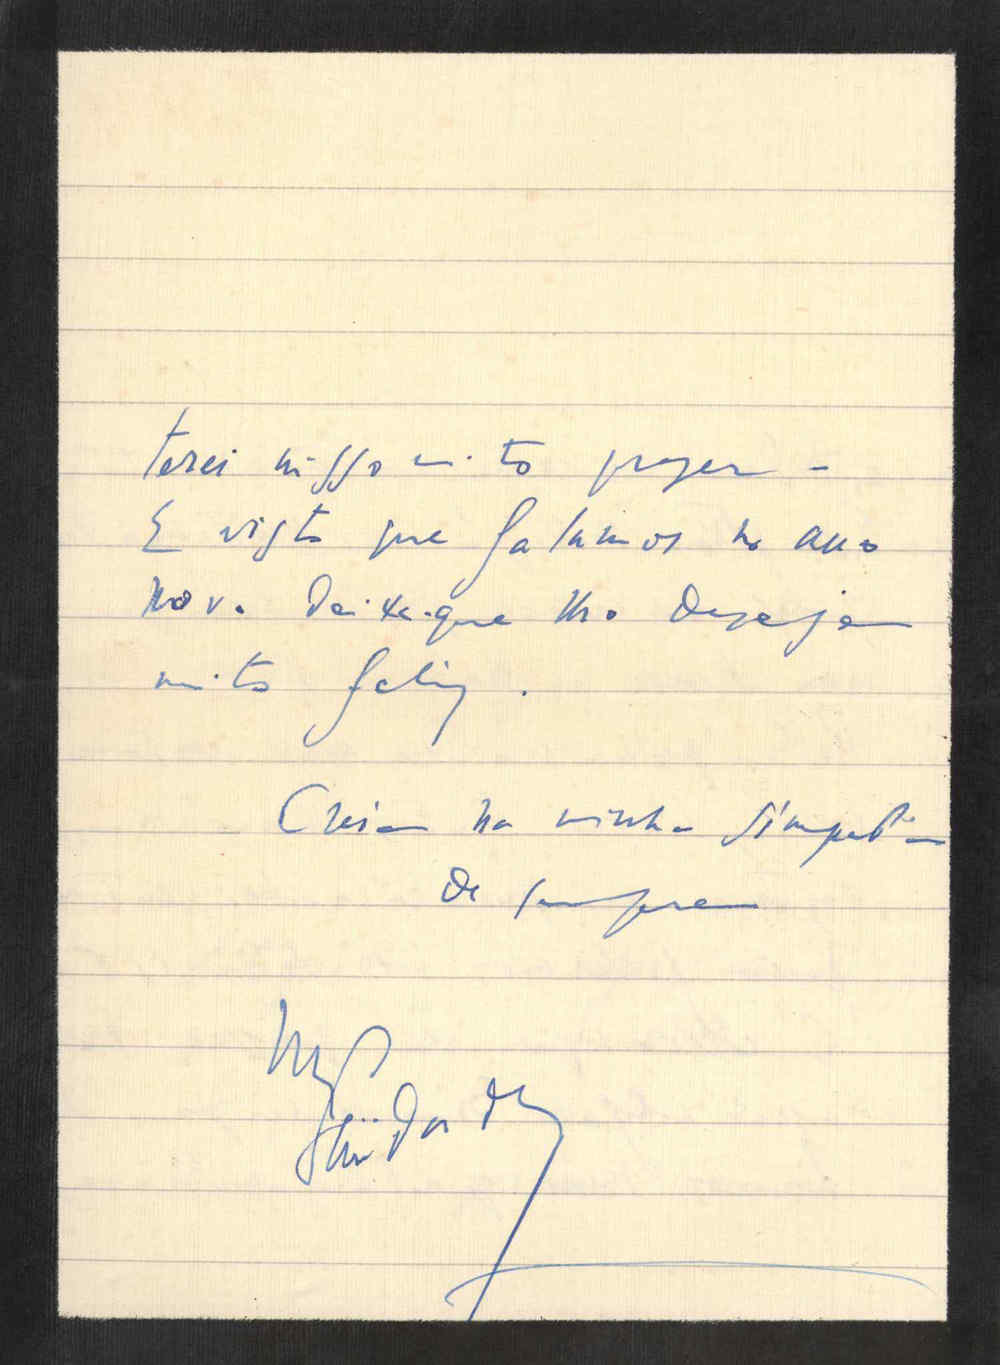 terei nisso muito prazer –
E visto que falamos no ano
novo deixe-que lho deseje
muito feliz.
Creia na minha simpatia
de sempre